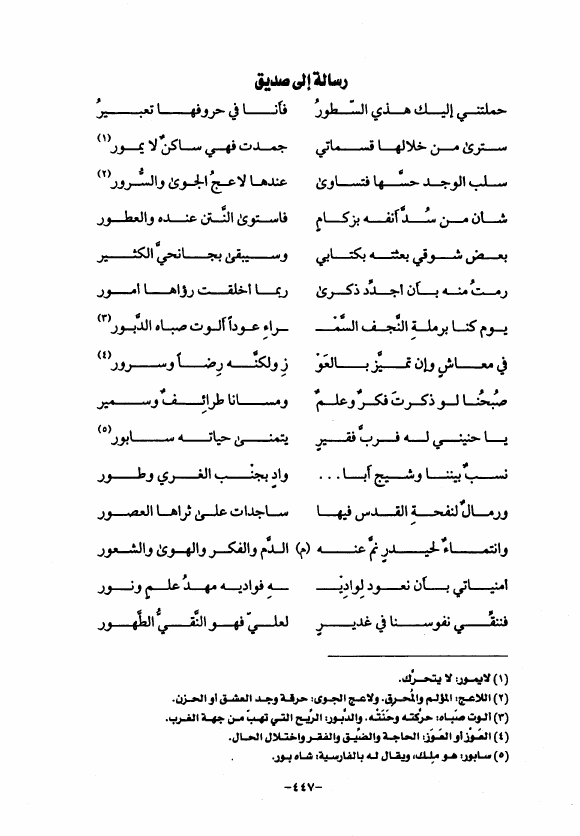 رسالة إلى صديق
حملتني إليك هذي السّطورُ فأنا في حروفها تعبيرُ
سترى من خلالها قسماتي جمدت فهي ساكنٌ لا يمور(١)
سلب الوجد حسَّها فتساوى عندها لاعجُ الجوى والسُّرور(٢)
شان من سُدَّ أنفه بزكامٍ فاستوى النَّتن عنده والعطور
بعض شوقي بعثته بكتابي وسيبقى بجانحيَّ الكثير
رمتُ منه بأن أجدّد ذكرى ربما أخلقت رؤاها أمور
يوم كنا برملةِ النَّجف السَّمْـ ـراءِ عوداً ألوت صباه الدَّبور(٣)
في معاشٍ وإن تميَّز بالعَوْ زِ ولكنَّه رضاً وسرور(٤)
صُبحُنا لو ذكرتَ فكرٌ وعلمٌ ومسانا طرائفٌ وسمير
يا حنيني له فربَّ فقيرٍ يتمنى حياته سابور(٥)
نسبٌ بيننا وشيج أبا... وادٍ بجنب الغري وطور
ورمالٌ لنفحة القدس فيها ساجدات على ثراها العصور
وانتماءٌ لحيدرٍ نمَّ عنه (م) الدَّم والفكر والهوى والشعور
أمنياتي بأن نعود لواديْـ ـه فواديه مهدُ علمٍ ونور
فننقِّي نفوسنا في غديرٍ لعليّ فهو النَّقيُّ الطَّهور
(١) لايمور: لا يتحرَّك.
(٢) اللاعج: المؤلم والمُحرق. ولاعج الجوى: حرقة وجد العشق أو الحزن.
(٣) ألوت صباه: حركته وحَنَتْه. والدَّبور: الرِّيح التي تهبّ من جهة الغرب.
(٤) العَوْز أو العَوَز: الحاجة والضِّيق والفقر واختلال الحال.
(٥) سابور: هو مَلِك، ويقال له بالفارسية: شاه بور.
-٤٤٧-